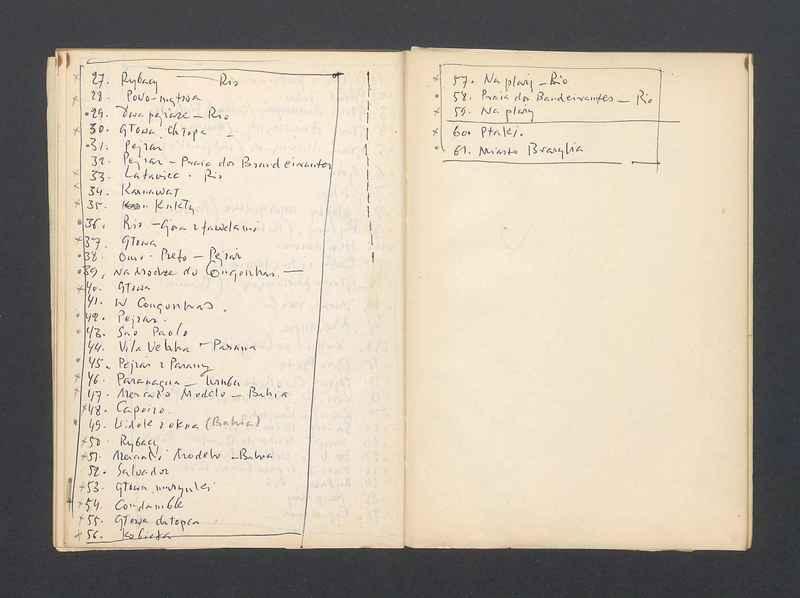 27. Rybacy — Rio
28.
29. Dwa pejzaże – Rio
30. Głowa chłopa –
31. Pejzaż
32. Pejzaż – Praia dos Brandeirantes
33. Latawiec - Rio
34. Karnawał
35. Kukły
36. Rio – Góra z fawelami
37. Głowa
38. Ouro - Preto – Pejzaż
39. Na drodze do Congonhas —
40. Głowa
41. W Congonhas.
42. Pejzaż.
43. Sao Paolo
44. Vila Velha – Parana
45. Pejzaż z Parany
46. Paranagua –
47. Mercado Modelo – Bahia
48. Capoeira.
49. Widok z okna (Bahia)
50. Rybacy
51. Modelo – Bahia
52. Salvador
53. Głowa murzynki
54. Condomble
55. Głowa chłopca
56. Kobieta
57. Na plaży – Rio
58. Praia dos Bandeirantes – Rio
59. Na plaży
60. Ptaki.
61. Miasto Brasylia